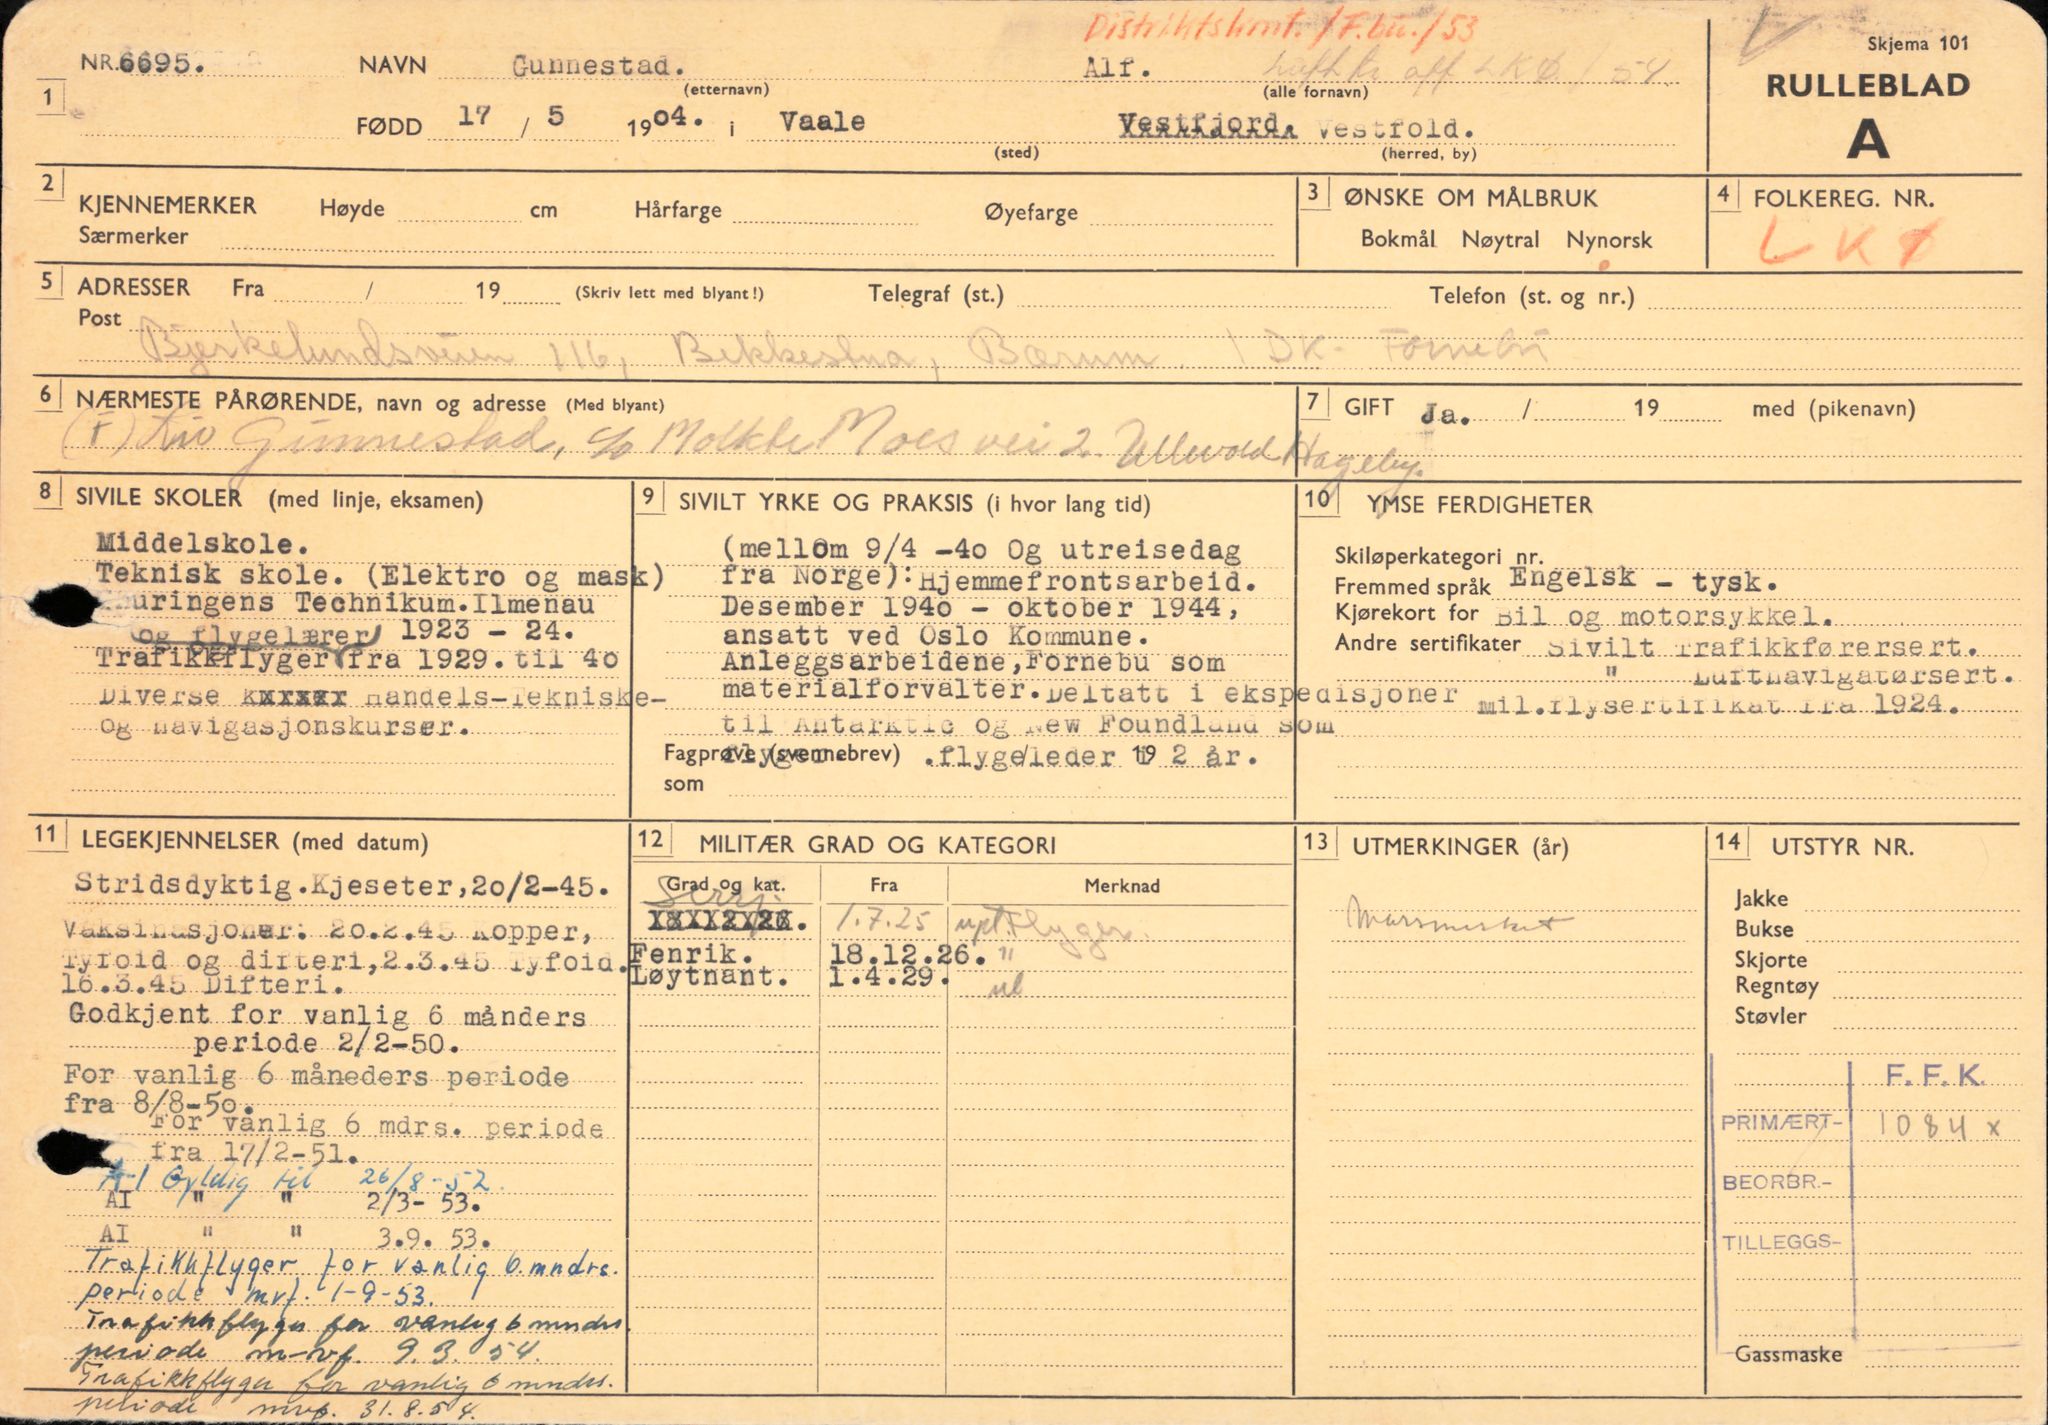 Distriktskont. / F.bu. / 53
Skjema 101
NR. 6695. NAVN Gunnestad. Alf. LKØ / 54
(etternavn) (alle fornavn)
RULLEBLAD
A
1
FØDD 17 / 5 1904. i Vaale Vestfjord. Vestfold.
(sted) (herred, by)
2 KJENNEMERKER Høyde cm Hårfarge Øyefarge
Særmerker
3 ØNSKE OM MÅLBRUK
Bokmål Nøytral Nynorsk
4 FOLKEREG. NR.
LKØ
5 ADRESSER Fra / 19 (Skriv lett med blyant!) Telegraf (st.) Telefon (st. og nr.)
Post
Bjerkelundsveien 116, Bekkestua, Bærum. / DK- Fornebu
6 NÆRMESTE PÅRØRENDE, navn og adresse (Med blyant)
(F) Liv Gunnestad, c/o Moltke Moes vei 2. Ullevold Hageby.
7 GIFT Ja. / 19 med (pikenavn)
8 SIVILE SKOLER (med linje, eksamen)
Middelskole.
Teknisk skole. (Elektro og mask)
Thuringens Technikum. Ilmenau
(og flygelærer) 1923 - 24.
Trafikkflyger fra 1929. til 40
Diverse kxxxxx Handels-Tekniske-
og navigasjonskurser.
9 SIVILT YRKE OG PRAKSIS (i hvor lang tid)
(mellom 9/4 -40 Og utreisedag
fra Norge): Hjemmefrontsarbeid.
Desember 1940 - oktober 1944,
ansatt ved Oslo Kommune.
Anleggsarbeidene, Fornebu som
materialforvalter. Deltatt i ekspedisjoner
til Antarktic og New Foundland som
flyger. .flygeleder i 2 år.
Fagprøve (svennebrev) 19
som
10 YMSE FERDIGHETER
Skiløperkategori nr.
Fremmed språk Engelsk - tysk.
Kjørekort for Bil og motorsykkel.
Andre sertifikater Sivilt Trafikkførersert.
" Luftnavigatørsert.
Mil. flysertifikat fra 1924.
11 LEGEKJENNELSER (med datum)
Stridsdyktig. Kjeseter, 20/2-45.
Vaksinasjoner: 20.2.45 Kopper,
Tyfoid og difteri, 2.3.45 Tyfoid.
16.3.45 Difteri.
Godkjent for vanlig 6 månders
periode 2/2-50.
For vanlig 6 måneders periode
fra 8/8-50.
For vanlig 6 mdrs. periode
fra 17/2-51.
A-1 Gyldig til 26/8-52.
AI " " 2/3- 53.
AI " " 3.9. 53.
Trafikkflyger for vanlig 6. mndrs.
periode mvf. 1-9-53.
Trafikkflyger for vanlig 6 mndrs.
periode m-vf. 9.3. 54.
Trafikkflyger for vanlig 6 mndrs.
periode mvf. 31.8.54.
12 MILITÆR GRAD OG KATEGORI
Grad og kat. Fra Merknad
Serrj. 1.7.25 Flyger.
Fenrik. 18.12.26. "
Løytnant. 1.4.29.
13 UTMERKINGER (år)
14 UTSTYR NR.
Jakke
Bukse
Skjorte
Regntøy
Støvler
F. F. K.
PRIMÆRT- 1084 x
BEORBR.-
TILLEGGS-
Gassmaske